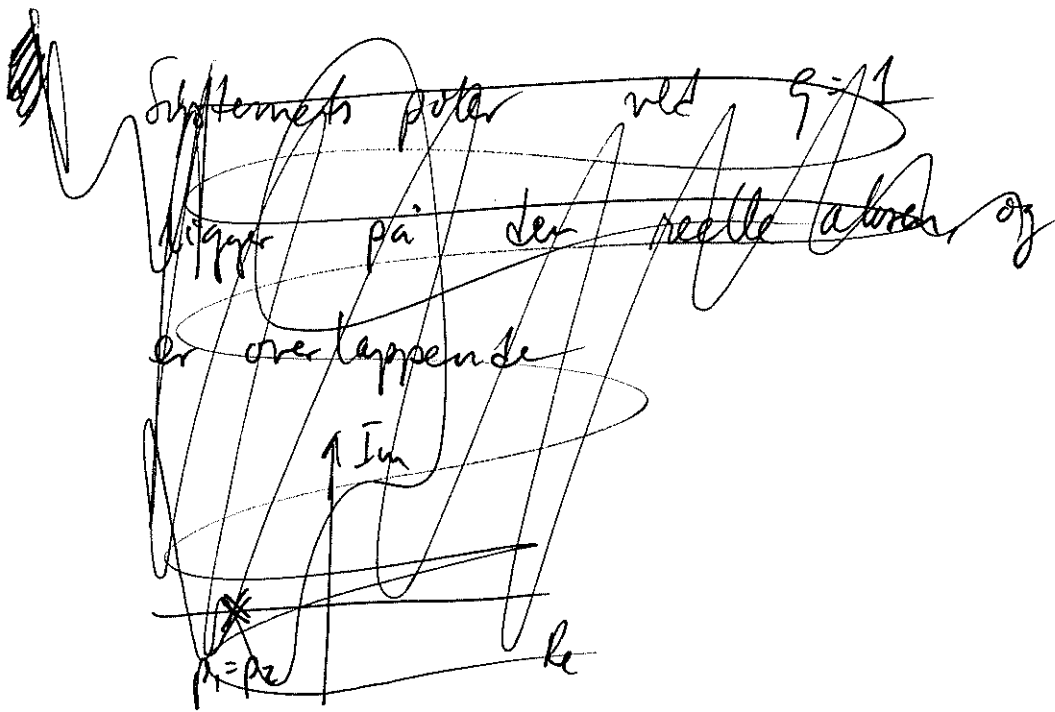 Systemets poler ved ζ = 1
ligger på den reelle aksen, og
er overlappende
Im
Re
p₁ = p₂